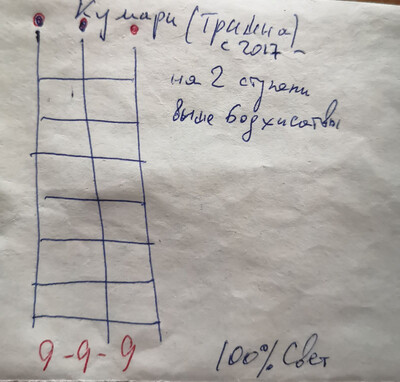 Кумари (Тришна)
с 2017 –
на 2 ступени
выше Бодхисатвы
9-9-9
100% Свет